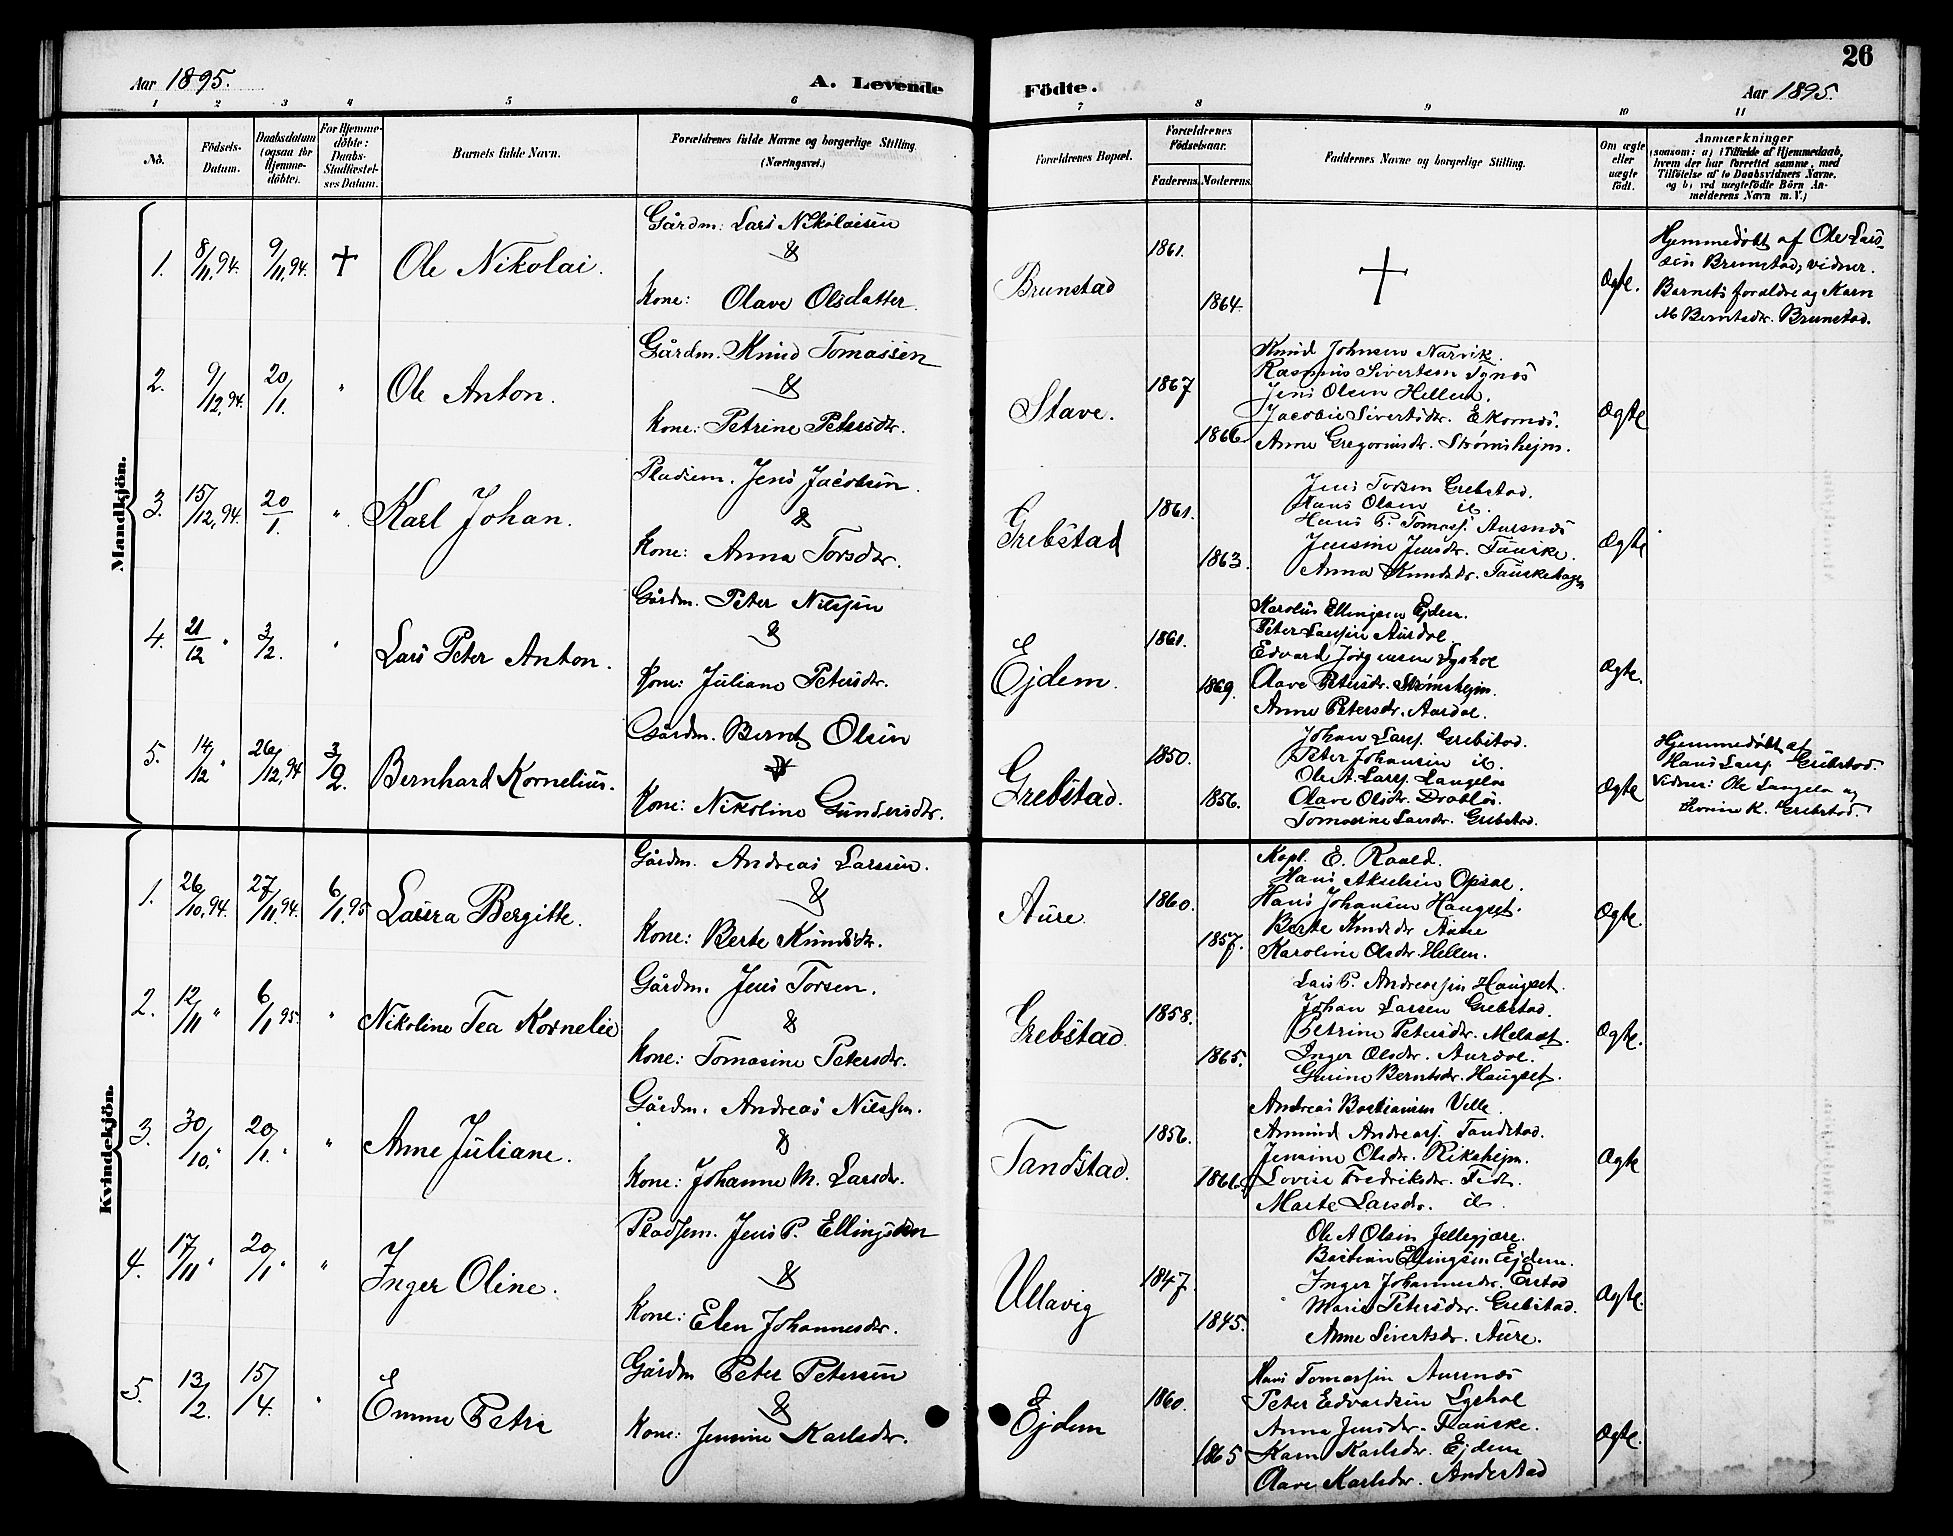 Aar 1895.
A. Levende
Födte.
Aar 1895.
26
1 2 3 4 5 6 7 8 9 10 11
No.
Födsels-
Datum.
Daabsdatum
(ogsaa for
Hjemme-
döbte).
For Hjemme-
döbte:
Daabs-
Stadfæstel-
ses Datum.
Barnets fulde Navn.
Forældrenes fulde Navne og borgerlige Stilling.
(Næringsvei.)
Forældrenes Bopæl.
Forældrenes
Födselsaar.
Faderens. Moderens.
Faddernes Navne og borgerlige Stilling.
Om ægte
eller
uægte
födt.
Anmærkninger
(saasom: a) i Tilfælde af Hjemmedaab,
hvem der har forrettet samme, med
Tilföielse af to Daabsvidners Navne,
og b) ved uægtefödte Börn An-
melderens Navn m. V.)
Mandkjön.
1. 8/11,94. 9/11,94. † Ole Nikolai.
Gårdm: Lars Nikolaisen
&
Kone: Olave Olsdatter.
Brunstad
1861.
1864.
†
Ægte.
Hjemmedøbt af Ole Lars-
sen Brunstad, vidner.
Barnets forældre og Karn
M Berntsdr. Brunstad.
2. 9/12,94. 20/1. " Ole Anton.
Gårdm. Knud Tomassen
&
Kone: Petrine Petersdtr.
Stave.
1867
1866.
Knud Johnsen Narvik.
Rasmus Sivertsen Tynes
Jens Olsen Hellen.
Jacobie Sivertsdtr. Ekornes.
Anne Gregoriusdr. Strømshejm.
Ægte
3. 15/12,94. 20/1. " Karl Johan.
Pladsem. Jens Jacobsen.
&
Kone: Anna Torsdtr.
Grebstad
1861.
1863.
Jens Torsen Grebstad.
Hans Olsen il.
Hans P. Tomass. Aursnes
Jensine Jensdr. Fauske.
Anna Knudsdr. Fauskehagen
Ægte
4. 21/12 " 3/2. " Lars Peter Anton.
Gårdm. Peter Nilssen
&
Kone: Juliane Petersdtr.
Ejdem.
1861.
1869.
Karolus Ellingsen Ejdem.
Peter Larssen Aurdal.
Edvard Jørgensen Lyshol
Olave Petersdr. Strømshejm.
Anne Petersdr. Aurdal.
Ægte.
5. 14/12 " 26/12,94 3/2. Bernhard Kornelius.
Gårdm. Bernt Olsen
&
Kone: Nikoline Gundersdtr.
Grebstad.
1850.
1856.
Johan Larss. Grebstad.
Peter Johansen il.
Ole A. Larss. Langelo
Olave Olsdtr. Drabløs.
Tomasine Larsdr. Grebstad.
Ægte
Hjemmedøbt af
Hans Larss. Grebstad.
Vidner: Ole Langelo og
K. Grebstad.
Kvindekjön.
1. 26/10,94. 27/11,94. 6/1,95 Laura Bergitte.
Gårdm. Andreas Larssen.
&
Kone: Berte Knudsdtr.
Aure
1860.
1857.
Kapl. E. Raald.
Hans Akselsen Opsal.
Hans Johansen Haugset.
Berte Knudsdr Aure
Karoline Olsdr. Hellen.
Ægte.
2. 12/11 " 6/1 95. " Nikoline Tea Kornelie
Gårdm. Jens Torsen.
&
Kone: Tomasine Petersdtr.
Grebstad.
1858.
1865.
Lars P. Andreassen Haugset.
Johan Larsen Grebstad.
Petrine Petersdtr. Melset.
Inger Olsdr. Aurdal.
Gurine Berntsdr. Haugset.
Ægte.
3. 30/10." 20/1." " Anne Juliane.
Gårdm. Andreas Nilssen.
&
Kone: Johanne M. Larsdr.
Tandstad.
1856.
1866.
Andreas Bastiansen Velle.
Amund Andreass. Tandstad.
Jensine Olsdr. Rikshejm.
Lovise Fredriksdr. Fedt.
Marte Larsdr. il.
Ægte
4. 17/11 " 20/1 " " Inger Oline.
Pladsem. Jens P. Ellingsen
&
Kone: Elen Johannesdr.
Ullavig
1847.
1845.
Ole A Olsen Jellegjære.
Bastian Ellingsen Ejdem.
Inger Johannesdr. Erstad
Marie Petersdtr. Grebstad.
Anne Sivertsdr. Aure.
Ægte.
5. 13/2. 15/4. " Emme Petra
Gårdm Peter Petersen
&
Kone: Jensine Karlsdtr.
Ejdem
1860.
1865
Hans Tomassen Aursnes
Peter Edvardsen Lyshol
Anna Jensdr. Fauske.
Karn Karlsdr. Ejdem
Olave Karlsdr. Andestad
Ægte.